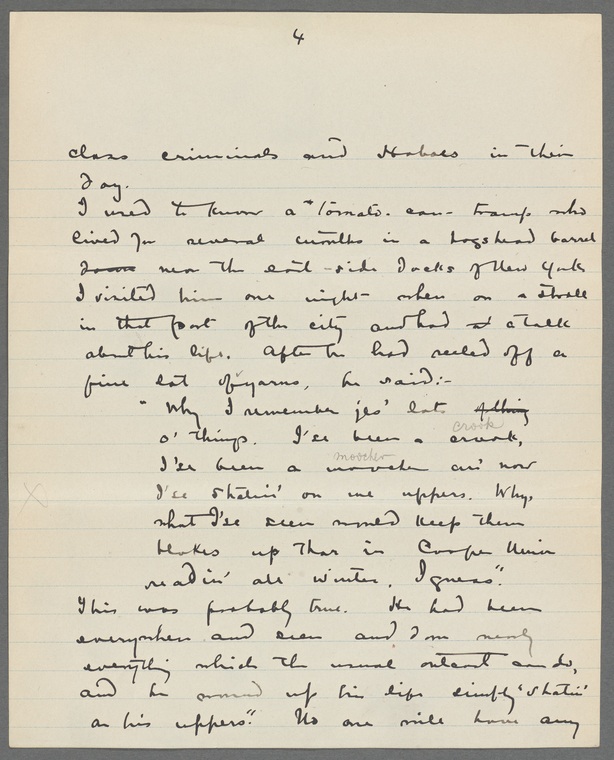 4
class criminals and Hoboes in their
day.
I used to know a "Tomato-can-tramp who
lived for several months in a hogshead barrel
near the east-side docks of New York
I visited him one night when on a stroll
in that part of the city and had a talk
about his life. After he had reeled off a
fine lot of yarns, he said:-
"Why I remember jes' lots o' thing
crook
o' things. I'se been a crook,
moocher
I'se been a moocher an' now
X
I'se shatin' on me uppers. Why,
what I'se seen would keep them
blokes up thar in Cooper Union
readin' all winter, I guess".
This was probably true. He had been
everywhere and seen and done nearly
everything which the usual outcast can do,
and he wound up his life simply "shatin'
on his uppers". No one will have any